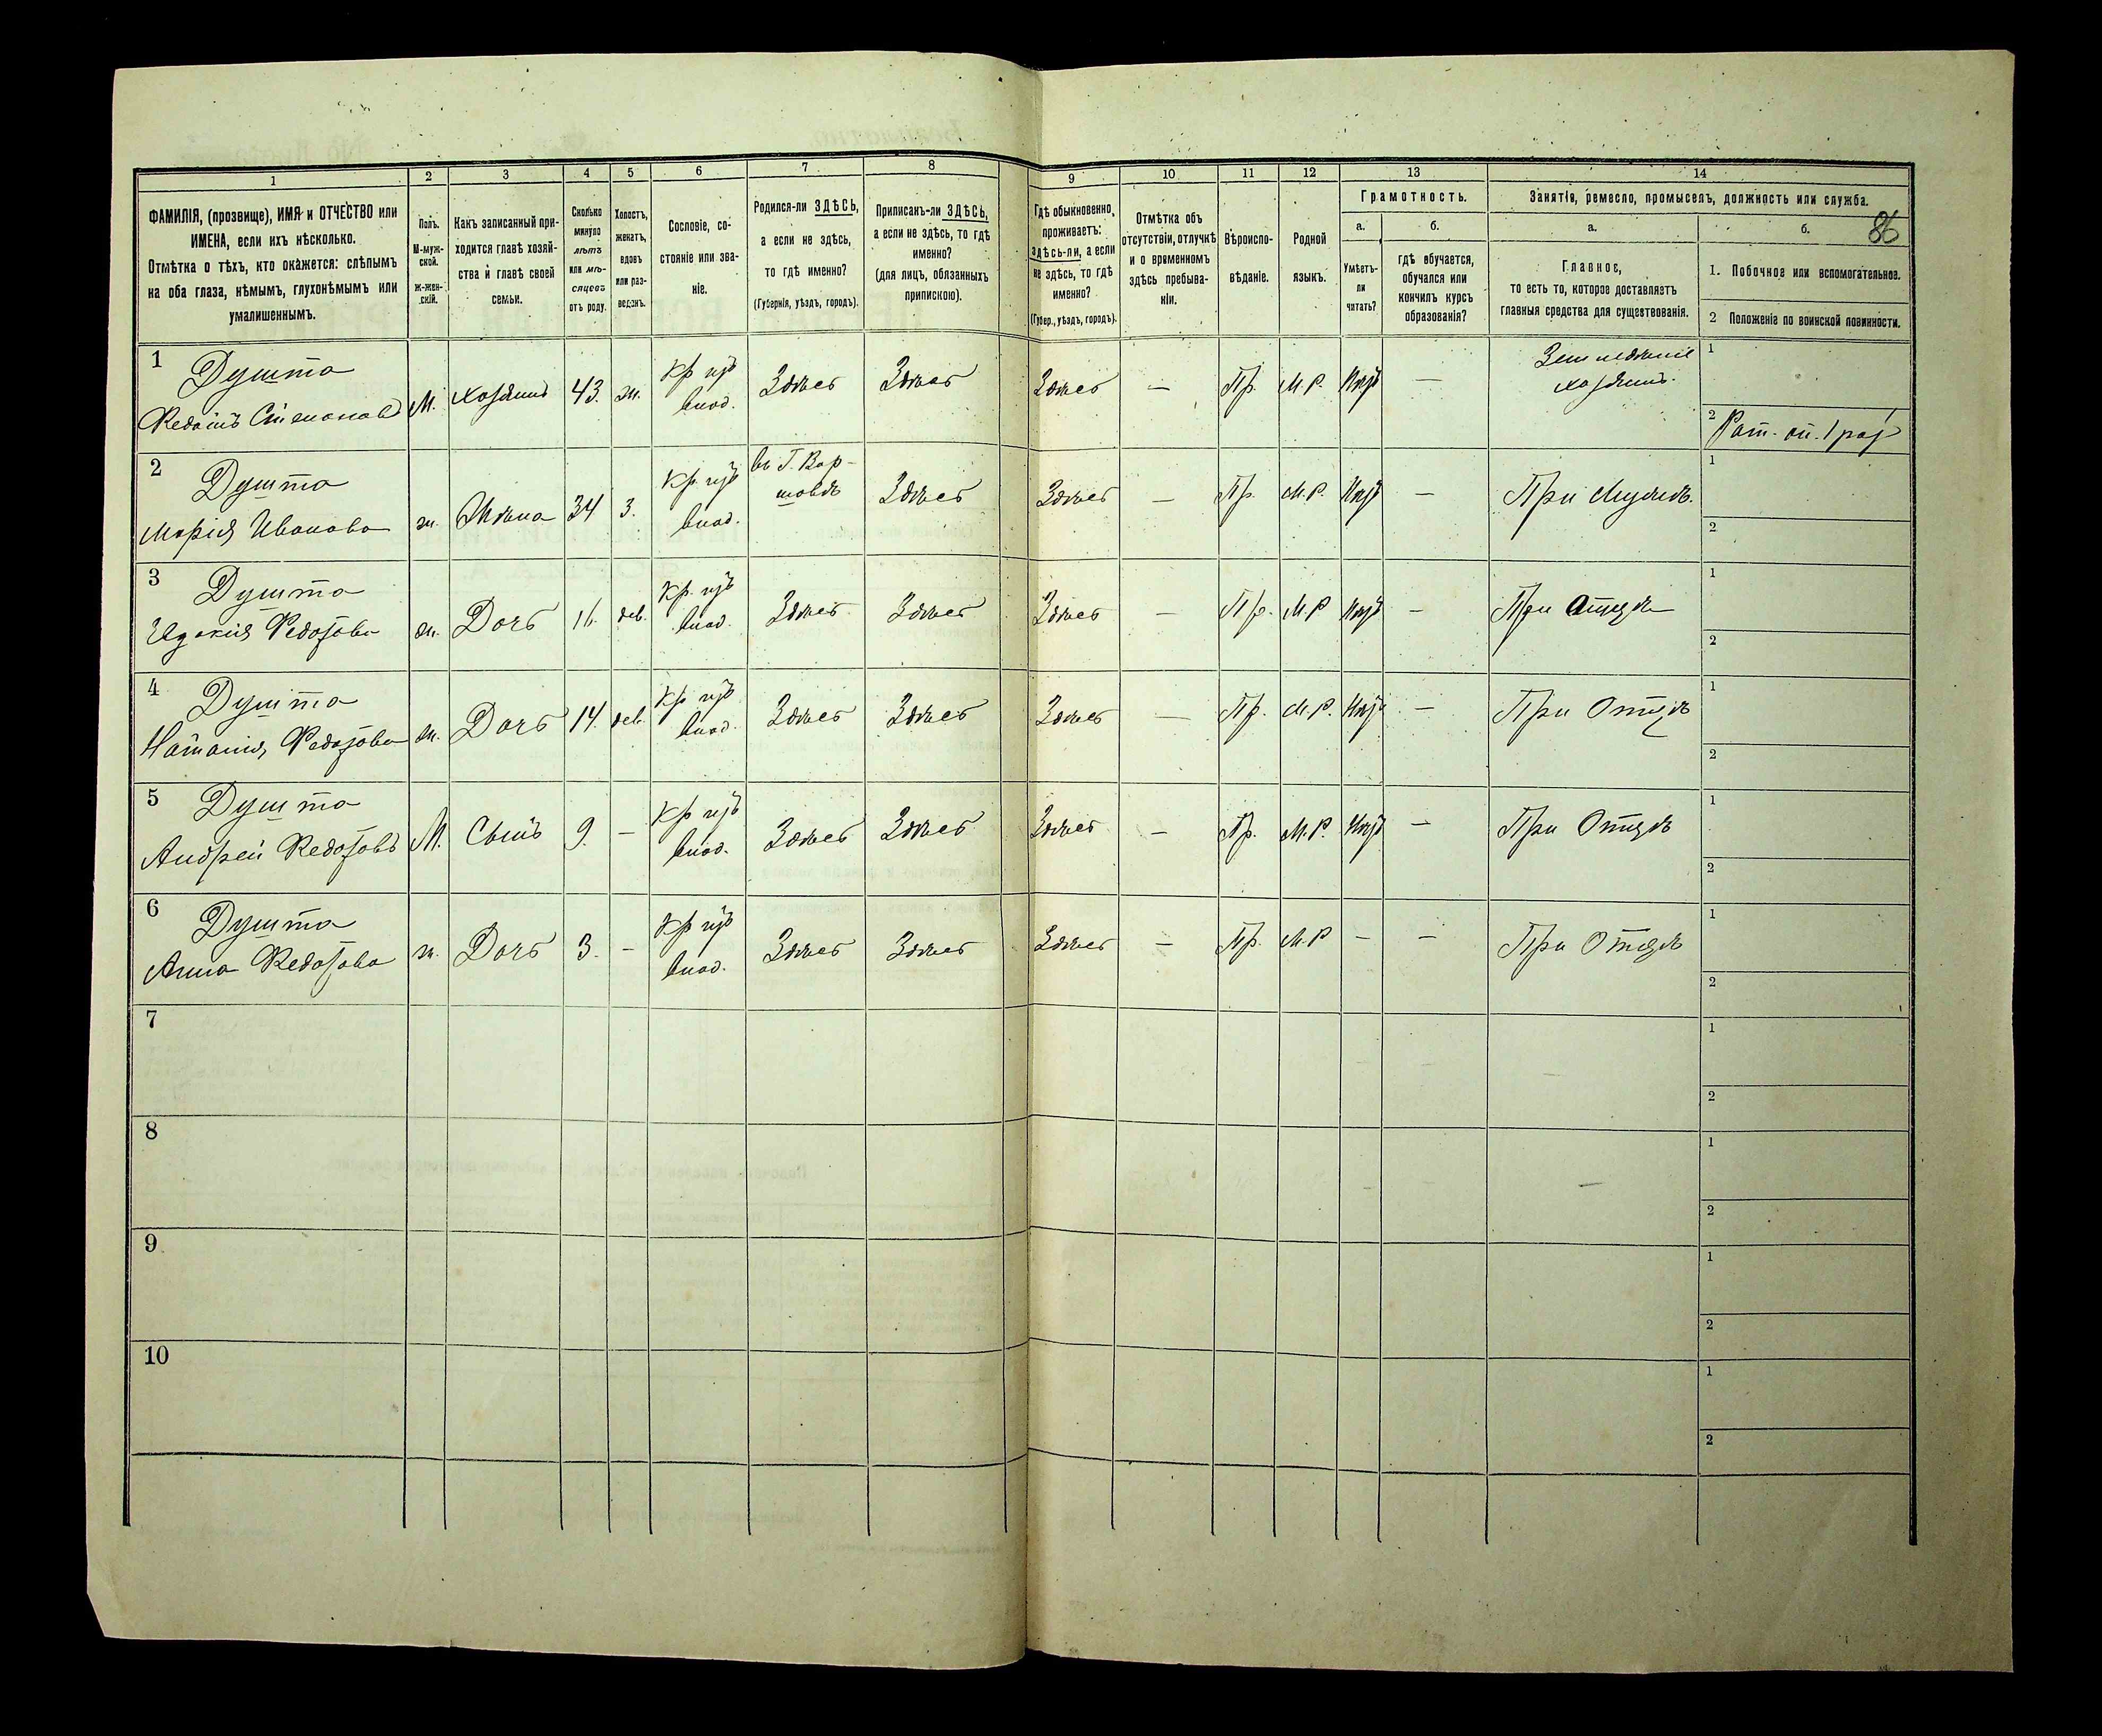 1 2 3 4 5 6 7 8 9 10 11 12 13 14
ФАМИЛІЯ, (прозвище), ИМЯ и ОТЧЕСТВО или
ИМЕНА, если ихъ нѣсколько.
Отмѣтка о тѣхъ, кто окажется: слѣпымъ
на оба глаза, нѣмымъ, глухонѣмымъ или
умалишеннымъ.
Полъ.
М-муж-
ской.
ж-жен-
скій.
Какъ записанный при-
ходится главѣ хозяй-
ства и главѣ своей
семьи.
Сколько
минуло
лѣтъ
или мѣ-
сяцевъ
отъ роду.
Холостъ,
женатъ,
вдовъ
или раз-
веденъ.
Сословіе, со-
стояніе или зва-
ніе.
Родился-ли ЗДѢСЬ,
а если не здѣсь,
то гдѣ именно?
(Губернія, уѣздъ, городъ).
Приписанъ-ли ЗДѢСЬ,
а если не здѣсь, то гдѣ
именно?
(для лицъ, обязанныхъ
припискою).
Гдѣ обыкновенно
проживаетъ:
здѣсь-ли, а если
не здѣсь, то гдѣ
именно?
(Губер., уѣздъ, городъ).
Отмѣтка объ
отсутствіи, отлучкѣ
и о временномъ
здѣсь пребыва-
ніи.
Вѣроиспо-
вѣданіе.
Родной
языкъ.
Грамотность.
а.
Умѣетъ-
ли
читать?
б.
гдѣ обучается,
обучался или
кончилъ курсъ
образованія?
Занятіе, ремесло, промыселъ, должность или служба.
86
а.
Главное,
то есть то, которое доставляетъ
главныя средства для существованія.
б.
1. Побочное или вспомогательное.
2 Положеніе по воинской повинности.
1 Душта
Степанов М. хозяинъ 43. ж. Кр изъ
влад.
Здѣсь Здѣсь Здѣсь — Пр. М.Р. —
Земледѣліе
хозяинъ.
1
2 Рат. оп. 1 раз
2 Душта
Марія Иванова ж. Жена 34 з. Кр изъ
влад.
въ Г. Вар-
Здѣсь Здѣсь — Пр. М.Р. — При Мужѣ.
1
2
3 Душта
ж. Дочь 16. дев. Кр изъ
влад.
Здѣсь Здѣсь Здѣсь — Пр. М.Р — При Отцѣ
1
2
4 Душта
ж. Дочь 14. дев. Кр изъ
влад.
Здѣсь Здѣсь Здѣсь — Пр. М.Р. — При Отцѣ
1
2
5 Душта
Андрей Федотовъ М. Сынъ 9. — Кр изъ
влад.
Здѣсь Здѣсь Здѣсь — Пр. М.Р. — При Отцѣ
1
2
6 Душта
Анна Федотова ж. Дочь 3. — Кр изъ
влад.
Здѣсь Здѣсь Здѣсь — Пр. М.Р — — При Отцѣ
1
2
7
1
2
8
1
2
9
1
2
10
1
2